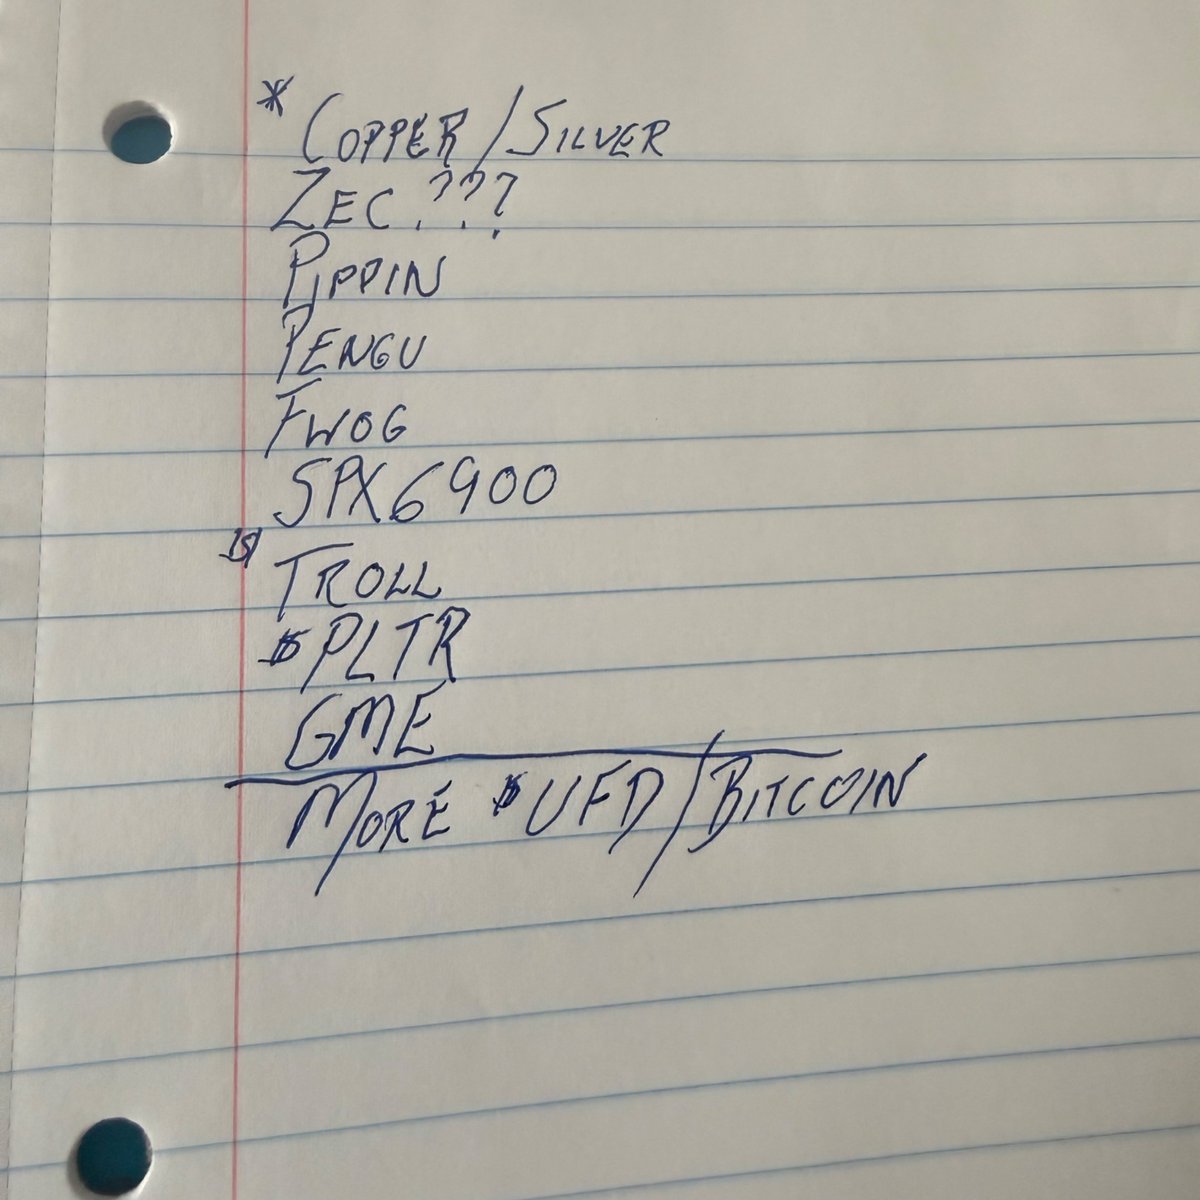 * COPPER / SILVER
ZEC.???
PIPPIN
PENGU
FWOG
SPX6900
$ TROLL
$PLTR
GME
MORE $UFD / BITCOIN